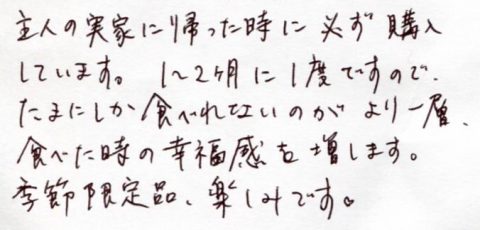 主人の実家に帰った時に必ず購入
しています。 1〜2ヶ月に1度ですので、
たまにしか食べれないのがより一層、
食べた時の幸福感を増します。
季節限定品、楽しみです。